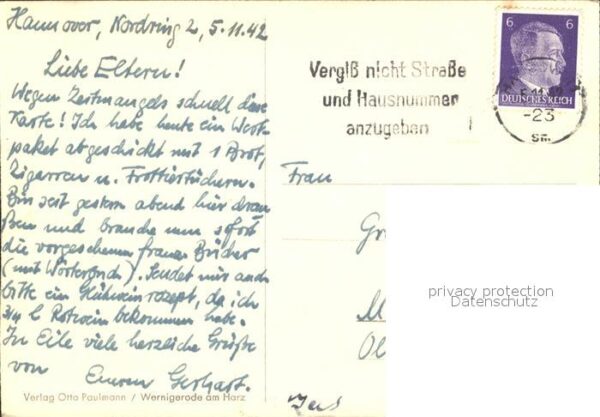 Hannover, Nordring 2, 5.11.42
Liebe Eltern!
Wegen Zeitmangels schnell diese
Karte! Ich habe heute ein Wert-
paket abgeschickt mit 1 Brot,
Zigarren u. Frottiertüchern.
Bin seit gestern abend hier drau-
ßen und brauche nun sofort
die vorgesehenen franz. Bücher
(mit Wörterbuch). Sendet mir auch
bitte ein Glühweinrezept, da ich
3/4 l Rotwein bekommen habe.
In Eile viele herzliche Grüße
von Eurem Gerhart.
Verlag Otto Paulmann / Wernigerode am Harz
Vergiß nicht Straße
und Hausnummer
anzugeben
6 6
DEUTSCHES REICH
-23
Frau
privacy protection
Datenschutz